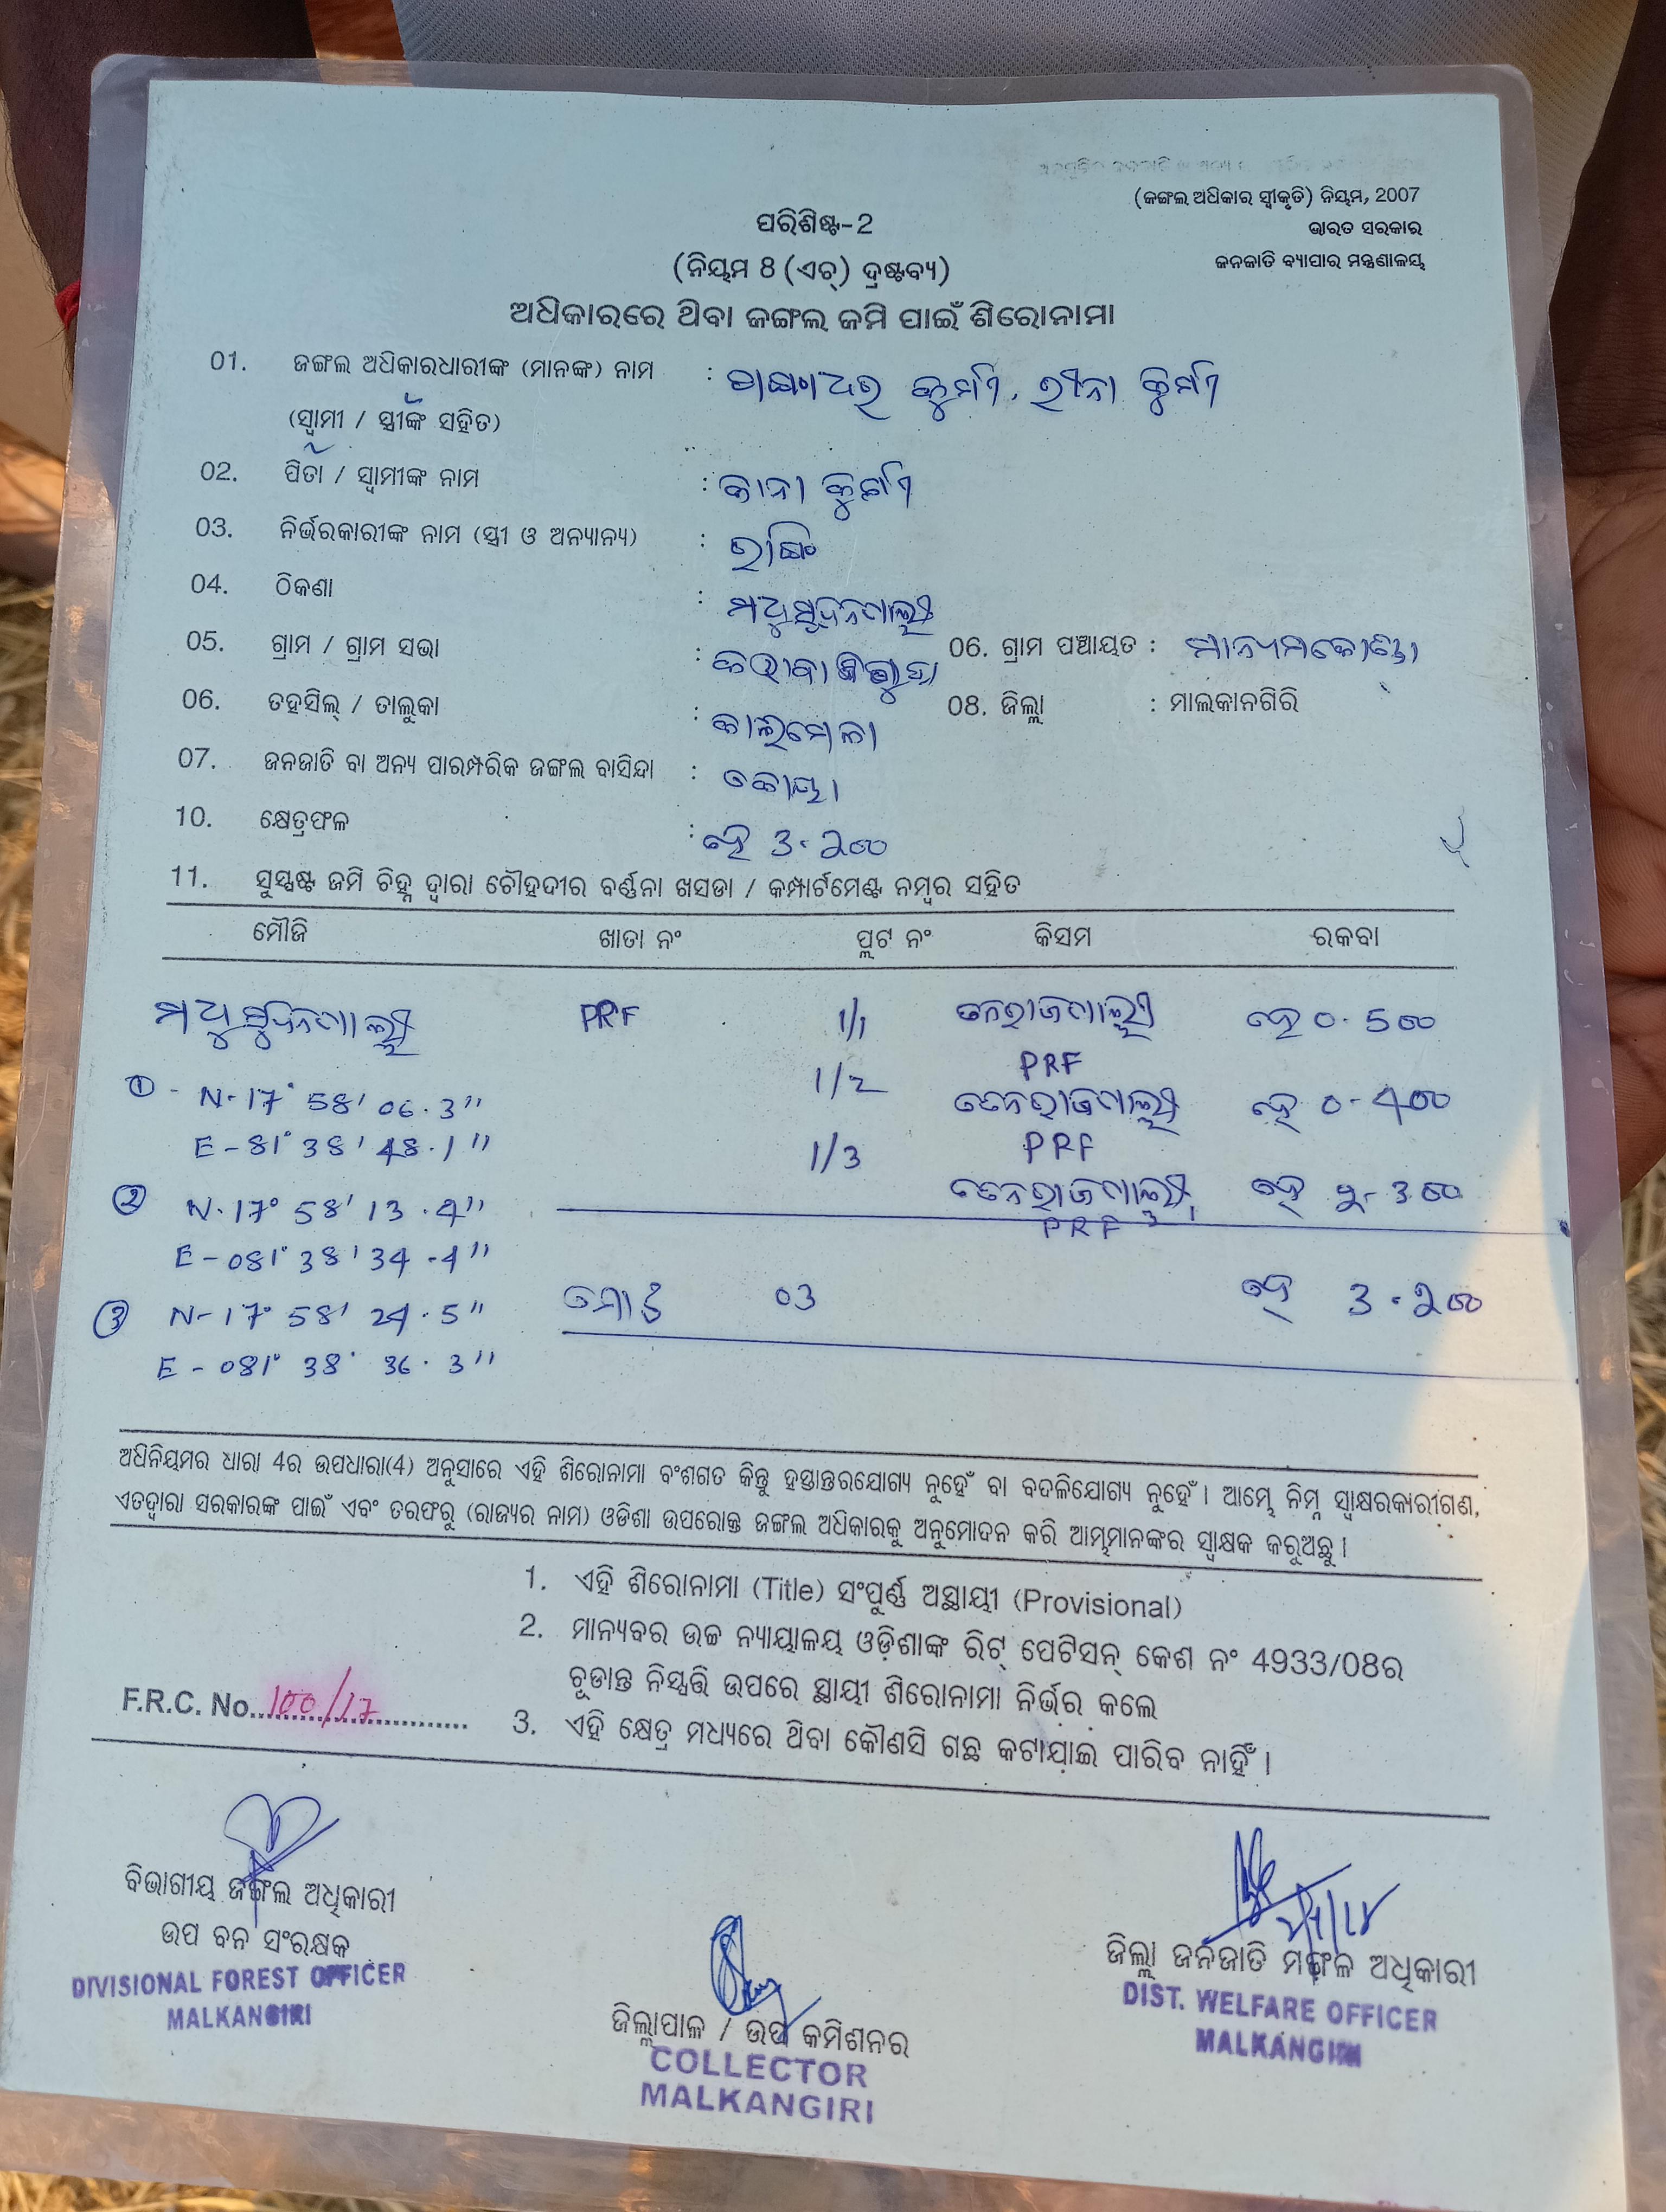 (ଜଙ୍ଗଲ ଅଧିକାର ସ୍ୱୀକୃତି) ନିୟମ, 2007
ଭାରତ ସରକାର
ଜନଜାତି ବ୍ୟାପାର ମନ୍ତ୍ରଣାଳୟ
ପରିଶିଷ୍ଟ-2
(ନିୟମ 8 (ଏଚ୍) ଦ୍ରଷ୍ଟବ୍ୟ)
ଅଧିକାରରେ ଥିବା ଜଙ୍ଗଲ ଜମି ପାଇଁ ଶିରୋନାମା
01. ଜଙ୍ଗଲ ଅଧିକାରଧାରୀଙ୍କ (ମାନଙ୍କ) ନାମ :
(ସ୍ୱାମୀ / ସ୍ତ୍ରୀଙ୍କ ସହିତ)
02. ପିତା / ସ୍ୱାମୀଙ୍କ ନାମ :
03. ନିର୍ଭରକାରୀଙ୍କ ନାମ (ସ୍ତ୍ରୀ ଓ ଅନ୍ୟାନ୍ୟ) :
04. ଠିକଣା : ମଧୁସୁଦନପାଲ୍ଲୀ
05. ଗ୍ରାମ / ଗ୍ରାମ ସଭା : 06. ଗ୍ରାମ ପଞ୍ଚାୟତ : ମାନ୍ୟମକୋଣ୍ଡା
06. ତହସିଲ୍ / ତାଲୁକା : କାଲିମେଳା 08. ଜିଲ୍ଲା : ମାଲକାନଗିରି
07. ଜନଜାତି ବା ଅନ୍ୟ ପାରମ୍ପରିକ ଜଙ୍ଗଲ ବାସିନ୍ଦା : କୋୟା
10. କ୍ଷେତ୍ରଫଳ : ହେ 3.୨00
11. ସୁସ୍ପଷ୍ଟ ଜମି ଚିହ୍ନ ଦ୍ୱାରା ଚୌହଦୀର ବର୍ଣ୍ଣନା ଖସଡା / କମ୍ପାର୍ଟମେଣ୍ଟ ନମ୍ବର ସହିତ
ମୌଜି ଖାତା ନଂ ପ୍ଲଟ ନଂ କିସମ ରକବା
ମଧୁସୁଦନପାଲ୍ଲୀ PRF 1/1 ତେନରାଜପାଲ୍ଲୀ ହେ 0.500
PRF
① - N-17° 58' 06.3" 1/2 ତେନରାଜପାଲ୍ଲୀ ହେ 0-400
E-81° 38' 48.1" 1/3 PRF
② N-17° 58' 13.4" ତେନରାଜପାଲ୍ଲୀ ହେ ୨-300
PRF
E-081° 38' 34.4"
③ N-17° 58' 24.5" ମୋଟ 03 ହେ 3.୨00
E-081° 38' 36.3"
ଅଧିନିୟମର ଧାରା 4ର ଉପଧାରା(4) ଅନୁସାରେ ଏହି ଶିରୋନାମା ବଂଶଗତ କିନ୍ତୁ ହସ୍ତାନ୍ତରଯୋଗ୍ୟ ନୁହେଁ ବା ବଦଳିଯୋଗ୍ୟ ନୁହେଁ। ଆମ୍ଭେ ନିମ୍ନ ସ୍ୱାକ୍ଷରକାରୀଗଣ,
ଏତଦ୍ୱାରା ସରକାରଙ୍କ ପାଇଁ ଏବଂ ତରଫରୁ (ରାଜ୍ୟର ନାମ) ଓଡିଶା ଉପରୋକ୍ତ ଜଙ୍ଗଲ ଅଧିକାରକୁ ଅନୁମୋଦନ କରି ଆମ୍ଭମାନଙ୍କର ସ୍ୱାକ୍ଷକ କରୁଅଛୁ।
1. ଏହି ଶିରୋନାମା (Title) ସଂପୁର୍ଣ୍ଣ ଅସ୍ଥାୟୀ (Provisional)
2. ମାନ୍ୟବର ଉଚ୍ଚ ନ୍ୟାୟାଳୟ ଓଡ଼ିଶାଙ୍କ ରିଟ୍ ପେଟିସନ୍ କେଶ ନଂ 4933/08ର
ଚୂଡାନ୍ତ ନିସ୍ପତ୍ତି ଉପରେ ସ୍ଥାୟୀ ଶିରୋନାମା ନିର୍ଭର କଲେ
F.R.C. No. 100/17
3. ଏହି କ୍ଷେତ୍ର ମଧ୍ୟରେ ଥିବା କୌଣସି ଗଛ କଟାଯାଇ ପାରିବ ନାହିଁ।
ବିଭାଗୀୟ ଜଙ୍ଗଲ ଅଧିକାରୀ
ଉପ ବନ ସଂରକ୍ଷକ
DIVISIONAL FOREST OFFICER
MALKANGIRI
ଜିଲ୍ଲାପାଳ / ଉପ କମିଶନର
COLLECTOR
MALKANGIRI
ଜିଲ୍ଲା ଜନଜାତି ମଙ୍ଗଳ ଅଧିକାରୀ
DIST. WELFARE OFFICER
MALKANGIRI